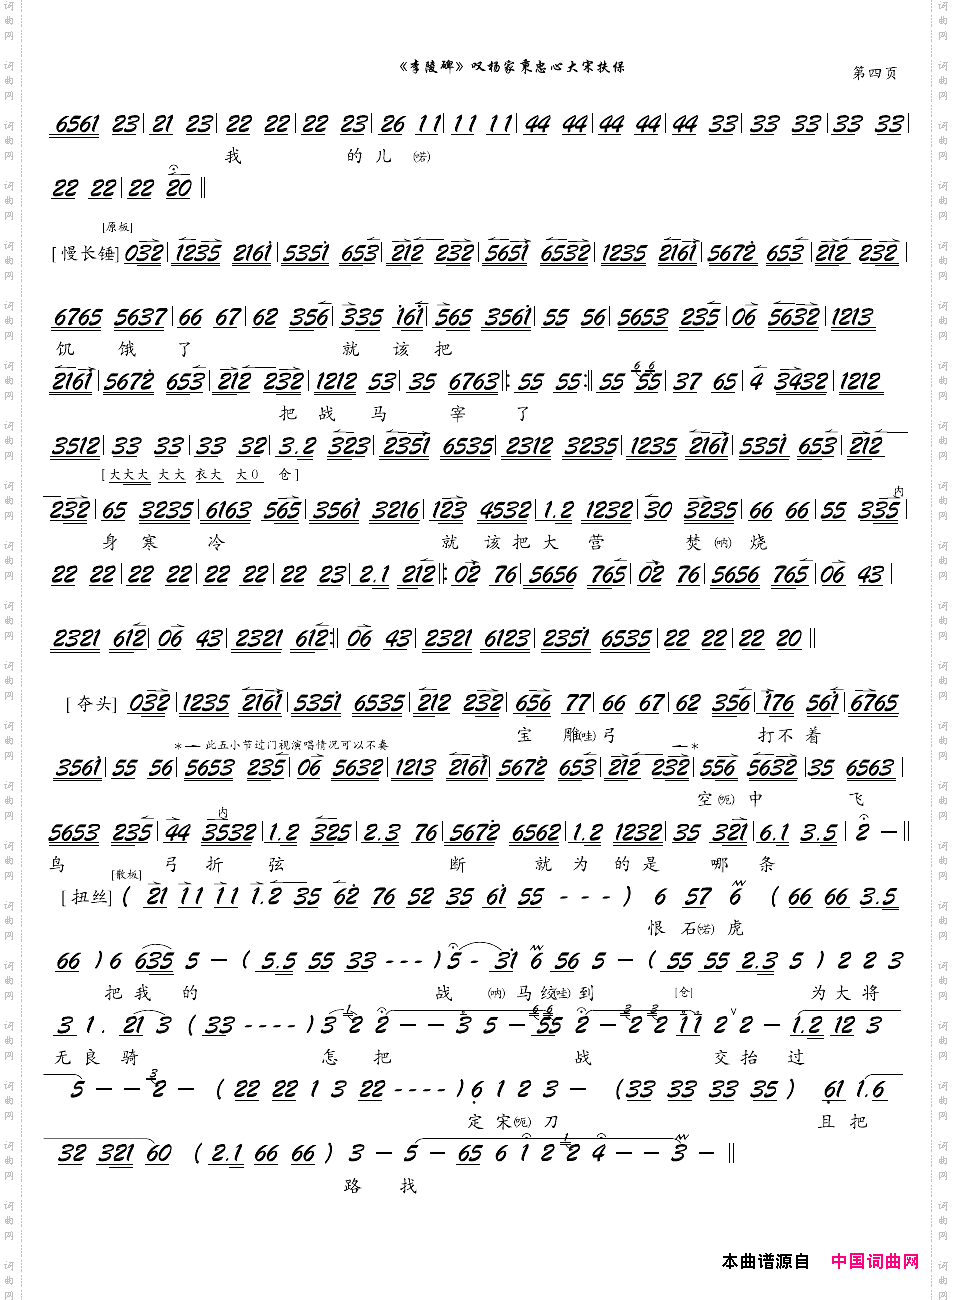 《李陵碑》叹杨家秉忠心大宋扶保
第四页
6561 23 | 21 23 | 22 22 | 22 23 | 26 11 | 11 11 | 44 44 | 44 44 | 44 33 | 33 33 | 33 33 |
我 的 儿 (喏)
22 22 | 22 20 ‖
[原板]
[慢长锤] 032 | 1235 2161 | 5351 653 | 212 232 | 5651 6532 | 1235 2161 | 5672 653 | 212 232 |
6765 5637 | 66 67 | 62 356 | 335 161 | 565 3561 | 55 56 | 5653 235 | 06 5632 | 1213
饥 饿 了 就 该 把
2161 | 5672 653 | 212 232 | 1212 53 | 35 6763 ‖: 55 55 :‖ 55 55 | 37 65 | 4 3432 | 1212
把 战 马 宰 了
3512 | 33 33 | 33 32 | 3.2 323 | 2351 6535 | 2312 3235 | 1235 2161 | 5351 653 | 212
[大大大 大大 衣大 大0 仓]
232 | 65 3235 | 6163 565 | 3561 3216 | 123 4532 | 1.2 1232 | 30 3235 | 66 66 | 55 335 |
内
身 寒 冷 就 该 把 大 营 焚 (呐) 烧
22 22 | 22 22 | 22 22 | 22 23 | 2.1 212 ‖: 02 76 | 5656 765 | 02 76 | 5656 765 | 06 43 |
2321 612 | 06 43 | 2321 612 :‖ 06 43 | 2321 6123 | 2351 6535 | 22 22 | 22 20 ‖
[夺头] 032 | 1235 2161 | 5351 6535 | 212 232 | 656 77 | 66 67 | 62 356 | 176 561 | 6765
宝 雕 (哇) 弓 打 不 着
*— 此五小节过门视演唱情况可以不奏 — *
3561 | 55 56 | 5653 235 | 06 5632 | 1213 2161 | 5672 653 | 212 232 | 556 5632 | 35 6563 |
空 (呃) 中 飞
内
5653 235 | 44 3532 | 1.2 325 | 2.3 76 | 5672 6562 | 1.2 1232 | 35 321 | 6.1 3.5 | 2 — ‖
鸟 弓 折 弦 断 就 为 的 是 哪 条
[散板]
[扭丝] ( 21 11 11 1.2 35 62 76 52 35 61 55 - - - ) 6 57 6 ( 66 66 3.5
恨 石 (喏) 虎
66 ) 6 635 5 — ( 5.5 55 33 --- ) 5 - 31 6 56 5 — ( 55 55 2.3 5 ) 2 2 3
把 我 的 战 (呐) 马 绞 (哇) 到 [仓] 为 大 将
3 1. 21 3 ( 33 ---- ) 3 1 2 2 — — 3 5 — 66 55 2 — 3 2 3 2 11 2 ∨ 2 — 1.2 12 3
无 良 骑 怎 把 战 交 抬 过
5 — — 3 2 — ( 22 22 1 3 22 ---- ) 6 1 2 3 — ( 33 33 33 35 ) 61 1.6
定 宋 (呃) 刀 且 把
32 321 60 ( 2.1 66 66 ) 3 — 5 — 65 6 1 2 1 2 4 — — 3 — ‖
路 找
本曲谱源自 中国词曲网